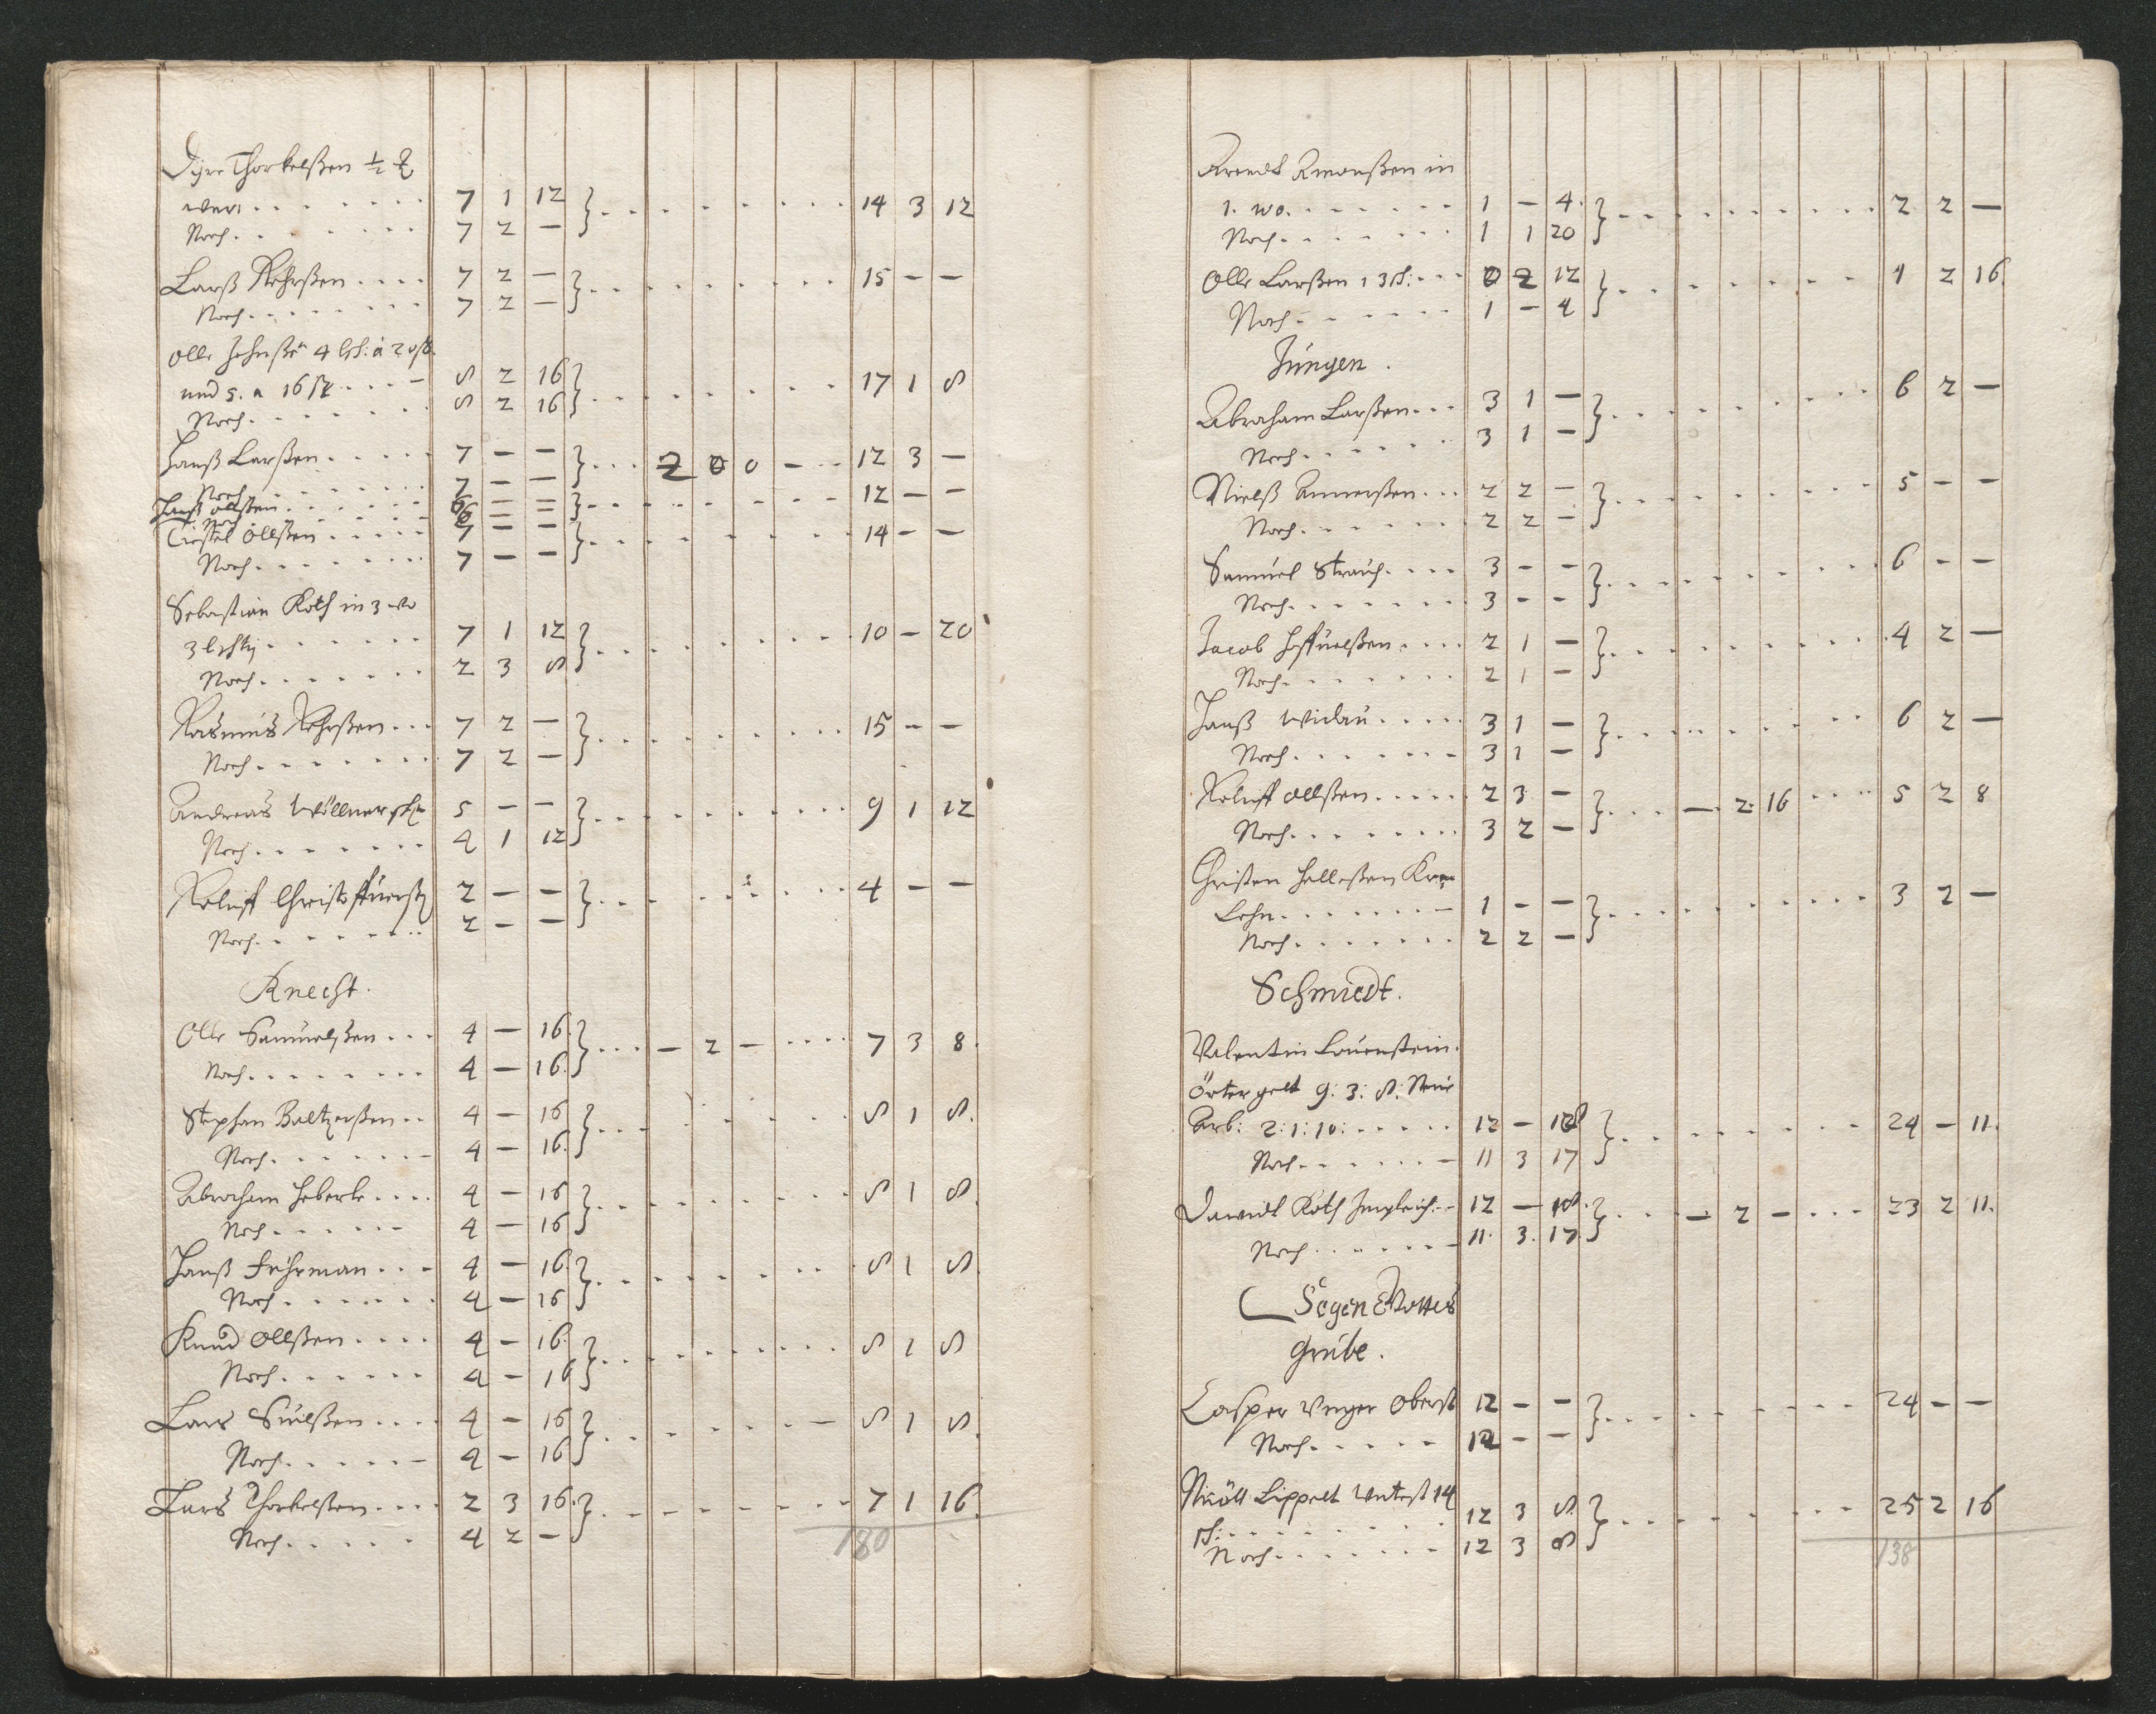 Dyre Thorkelßen ½
. . . . . . . 7 1 12 } . . . . . . . 14 3 12
Noch . . . . . . 7 2 —
Larß Rohrßen . . . . 7 2 — } . . . . . . . 15 — —
Noch . . . . . . 7 2 —
Olle Johnßen 4 lch: à 20 ß.
und 5. a 16 ß . . . — 8 2 16 } . . . . . . 17 1 8
Noch . . . . . . 8 2 16
Hanß Larßen . . . . . 7 — — } . . . 2 0 0 — . . 12 3 —
Noch . . . . . . 7 — —
Hanß Ollßen . . . . . 6 — — } . . . . . . . 12 — —
Noch 6 — —
Ciestel Ollßen . . . . . 7 — — } . . . . . . . 14 — —
Noch . . . . . . 7 — —
Sebastian Roth in 3 wo
3 lchtj . . . . . . 7 1 12 } . . . . . . . 10 — 20
Noch . . . . . . 2 3 8
Rasmus Rohrßen . . . 7 2 — } . . . . . . . 15 — —
Noch . . . . . . 7 2 —
Andreas Wöllner 5 — — } . . . . . . . 9 1 12
Noch . . . . . . 4 1 12
Roluff Christoffuerß 2 — — } . . . . . . . 4 — —
Noch . . . . . . 2 — —
Knecht.
Olle Samuelßen . . . 4 — 16 } . . . — 2 — . . . . 7 3 8.
Noch . . . . . . 4 — 16.
Stephan Baltzerßen . . 4 — 16 } . . . . . . . 8 1 8.
Noch . . . . . . 4 — 16.
Abraham Heberle . . . . 4 — 16 } . . . . . . . 8 1 8.
Noch . . . . . 4 — 16
Hanß Fuhrman . . . 4 — 16. } . . . . . . . 8 1 8.
Noch . . . . . . 4 — 16
Knud Ollßen . . . . 4 — 16. } . . . . . . . 8 1 8
Noch . . . . . . 4 — 16
Lars Siulßen . . . . 4 — 16 } . . . . . . — 8 1 8.
Noch . . . . . 4 — 16
Lars Thorkelßen . . . . 2 3 16. } . . . . . . . 7 1 16.
Noch . . . . . 4 2 —
180
Arendt Amonßen in
1. wo. . . . . . . 1 — 4. } . . . . . . . 2 2 —
Noch . . . . . . 1 1 20
Olle Larßen 13 ch: . . . 0 2 12 } . . . . . . . 1 2 16.
Noch . . . . . . 1 — 4
Jungen.
Abraham Larßen . . . 3 1 — } . . . . . . . 6 2 —
Noch . . . . . . 3 1 —
Nielß Ammerßen . . . 2 2 — } . . . . . . . 5 — —
Noch . . . . . . 2 2 —
Samuel Strauch . . . . 3 — — } . . . . . . . 6 — —
Noch . . . . . . 3 — —
Jacob Hoffuelßen . . . . 2 1 — } . . . . . . . 4 2 —
Noch . . . . . . 2 1 —
Hanß Widau . . . . . 3 1 — } . . . . . . . 6 2 —
Noch . . . . . . 3 1 —
Roluff Ollßen . . . . . 2 3 — } . . . — 2 16 . . . . 5 2 8
Noch . . . . . . 3 2 —
Christen Helleßen
Lohn . . . . . . 1 — — } . . . . . . . 3 2 —
Noch . . . . . . 2 2 —
Schmiedt.
Valentin Lauenstein.
Örtergelt 9: 3: 8: Neue
Arb: 2: 1: 10: . . . . . 12 — 18 } . . . . . . . 24 — 11.
Noch . . . . . . 11 3 17
Dawidt Roth Jmgleich: . . 12 — 18. } . . . — 2 — . . . 23 2 11.
Noch . . . . . . 11. 3. 17.
Segen Gottes
Grube.
Casper Unger Oberst 12 — — } . . . . . . . 24 — —
Noch . . . . . 12 — —
Nicöll Lippelt Unterst 14
ch: . . . . . . . 12 3 8. } . . . . . . . 25 2 16
Noch . . . . . . 12 3 8
138